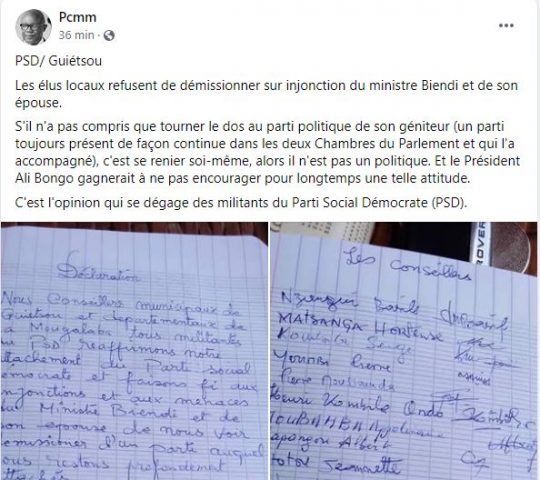 Pcmm
36 min
PSD/ Guiétsou
Les élus locaux refusent de démissionner sur injonction du ministre Biendi et de son
épouse.
S'il n'a pas compris que tourner le dos au parti politique de son géniteur (un parti
toujours présent de façon continue dans les deux Chambres du Parlement et qui l'a
accompagné), c'est se renier soi-même, alors il n'est pas un politique. Et le Président
Ali Bongo gagnerait à ne pas encourager pour longtemps une telle attitude.
C'est l'opinion qui se dégage des militants du Parti Social Démocrate (PSD).
Déclaration
Nous Conseillers municipaux de
Guietsou et départementaux de
la Mougalaba tous militants
du PSD reaffirmons notre
ttachement du Parti social
démocrate et faisons fi aux
injonctions et aux menaces
du Ministre Biendi et de
son epouse de nous voir
demissioner d'un parti auquel
nous restons profondement
ttachés
Les Conseillers
Nziengui Basile
MATSANGA HORTENSE
Koumba Serge
YOUMBA Pierre
Pierre
Henri Kombila Ondo
TOUBAMBA Appolinaire
apangou Albert
toto Jeannette
ROVER